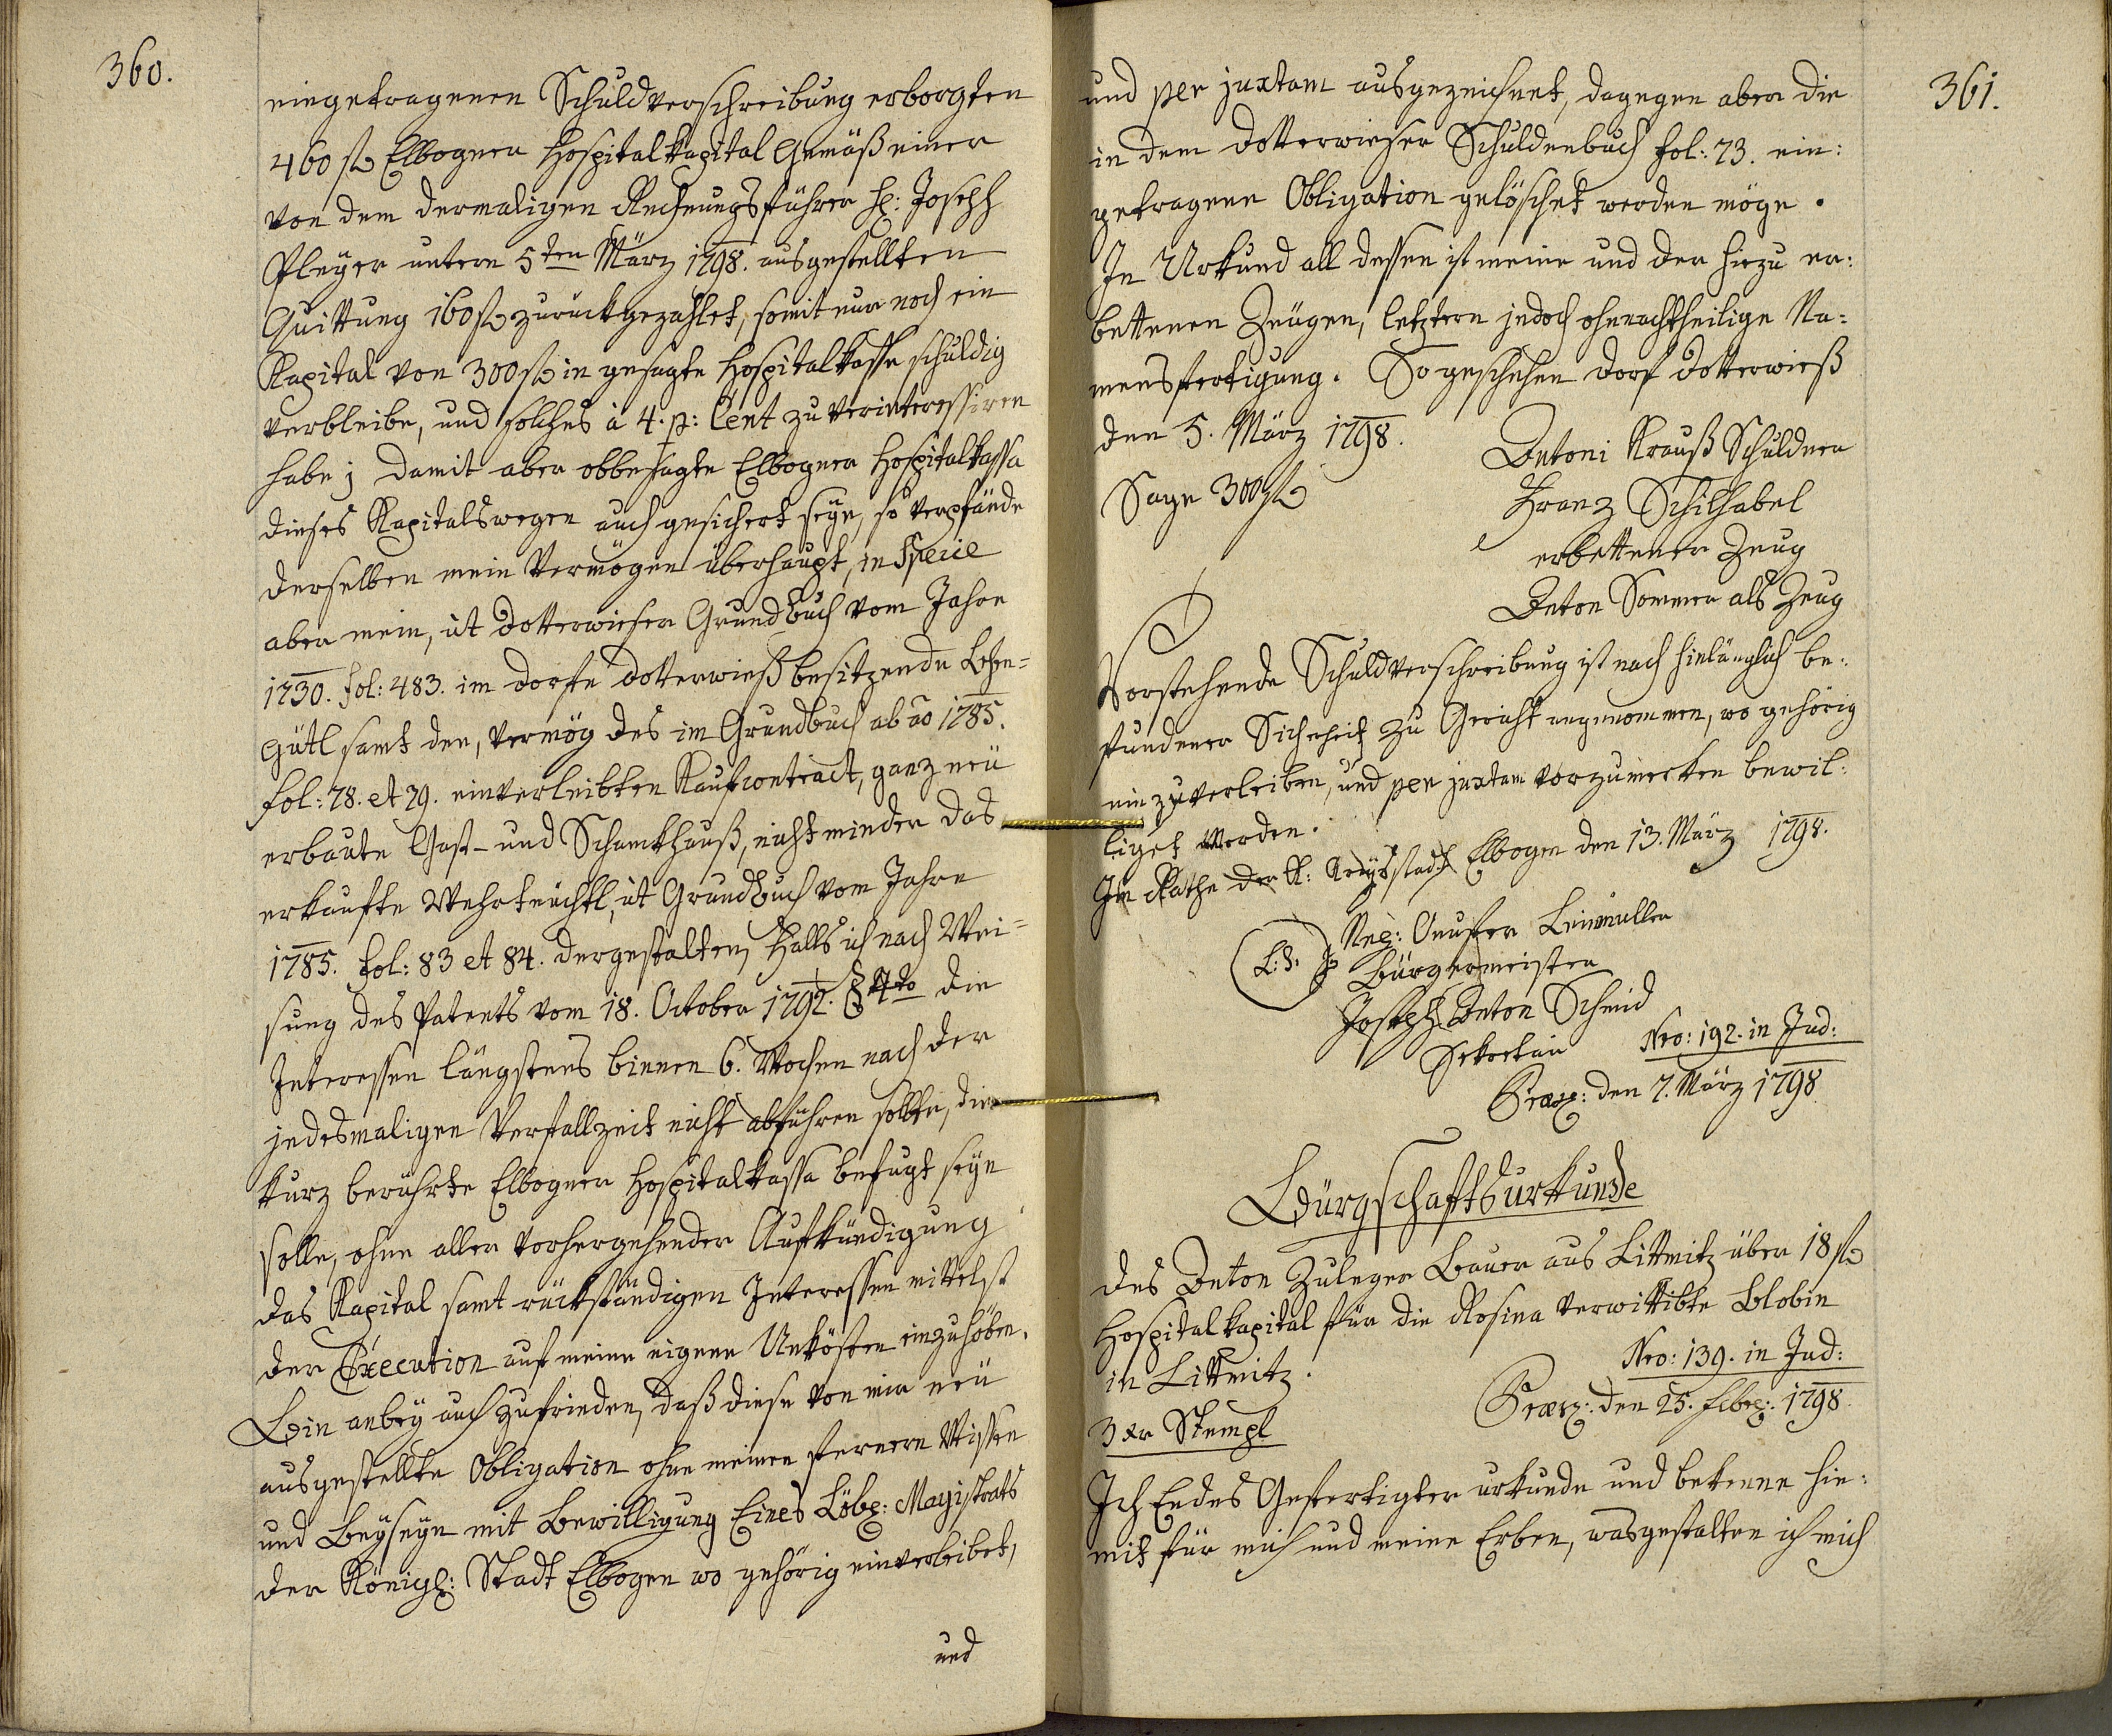 360.
eingetragenen Schuldverschreibung erborgten
460 fl Elbogner Hospitalkapital Gemäß einer
von dem dermaligen Rechnungsführer H: Joseph
Pleyer untern 5ten März 1798. ausgestellten
Quittung 160 fl zurückgezahlet, somit nur noch ein
Kapital von 300 fl in gesagte Hospitalkasse schuldig
verbleibe, und solches à 4. p: Cent zu verinteressiren
habe; damit aber obbesagte Elbogner Hospitalkassa
dieses Kapitalswegen auch gesichert seye, so verpfände
derselben mein Vermögen überhaupt, in Specie
aber mein, ut Dotterwieser Grundbuch vom Jahre
1730. fol: 483. im Dorfe Dotterwieß besitzende Lehen-
Gütl samt den, vermög des im Grundbuch ab ao 1785.
fol: 78. et 79. einverleibten Kaufcontract, ganz neü
erbaute Gast- und Schankhauß, nicht minder das
erkaufte Wehrteüchtl, ut Grundbuch vom Jahre
1785. fol: 83 et 84. dergestalten, Falls ich nach Wei=
sung des Patents vom 18. October 1792. § 4to die
Interessen längstens binnen 6. Wochen nach der
jedesmaligen Verfallzeit nicht abführen sollte, die
kurz berührte Elbogner Hospitalkassa befugt seyn
solle, ohne aller vorhergehender Aufkündigung
das Kapital samt rückständigen Interessen mittelst
der Execution auf meine eigene Unkösten einzuhöben.
Bin anbey auch zufrieden, daß diese von mir neü
ausgestellte Obligation ohne meinen ferneren Wissen
und Beyseyn mit Bewilligung Eines Löbl: Magistrats
der Königl: Stadt Elbogen wo gehörig einverleibet,
und
361.
und per juxtam ausgezeichnet, dagegen aber die
in dem Dotterwieser Schuldenbuch fol: 73. ein:
getragene Obligation gelöschet werden möge.
In Urkund all dessen ist meine und der hiezu er:
bettenen Zeügen, letztern jedoch ohnnachtheilige Na:
mensfertigung. So geschehen Dorf Dotterwieß
den 5. März 1798.
Antoni Krauß Schuldner
Sage 300 fl
Franz Schilhabel
erbettener Zeug
Anton Sommer als Zeug
Vorstehende Schuldverschreibung ist nach hinlänglich be:
fundener Sicherheit zu Gericht angenommen, wo gehörig
einzuverleiben, und per juxtam vorzumerken bewil:
liget worden.
Im Rathe der K: Kreysstadt Elbogen den 13. März 1798.
L: S.
Nep: Onufer Leinmüller
Bürgermeister
Joseph Anton Schmid
Sekretair
Nro: 192. in Jud:
Præs: den 7. März 1798
Bürgschaftsurkunde
des Anton Zuleger Bauer aus Littmitz über 18 fl
Hospitalkapital für die Rosina verwittibte Blobin
in Littmitz.
Nro: 139. in Jud:
Præs: den 25. Febr: 1798.
3 xr Stempl
Ich Endes Gefertigter urkunde und bekenne hie:
mit für mich und meine Erben, wasgestalten ich mich